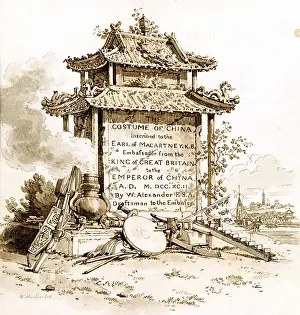 COSTUME OF CHINA,
Inscribed to the
EARL OF MACARTNEY K.B.
Embassador from the
KING OF GREAT BRITAIN
to the
EMPEROR OF CHINA
A.D. M.DCC.XC.II.
By W. Alexander F.S.A.
Draftsman to the Embassy.
W. Alexander fect.